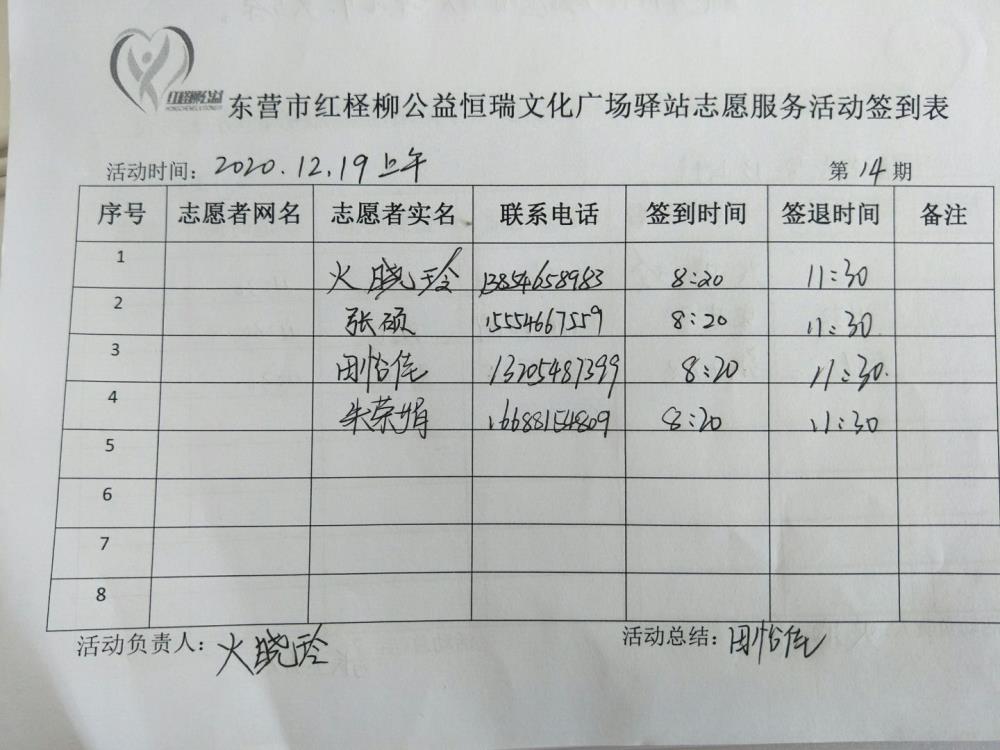 红柽柳公益
东营市红柽柳公益恒瑞文化广场驿站志愿服务活动签到表
活动时间：2020.12.19上午 第14期
序号 志愿者网名 志愿者实名 联系电话 签到时间 签退时间 备注
1 火晓玲 13854658983 8:20 11:30
2 张硕 15554667559 8:20 11:30
3 田怡佳 13205487399 8:20 11:30
4 朱荣娟 16688154809 8:20 11:30
5
6
7
8
活动负责人：火晓玲 活动总结：田怡佳